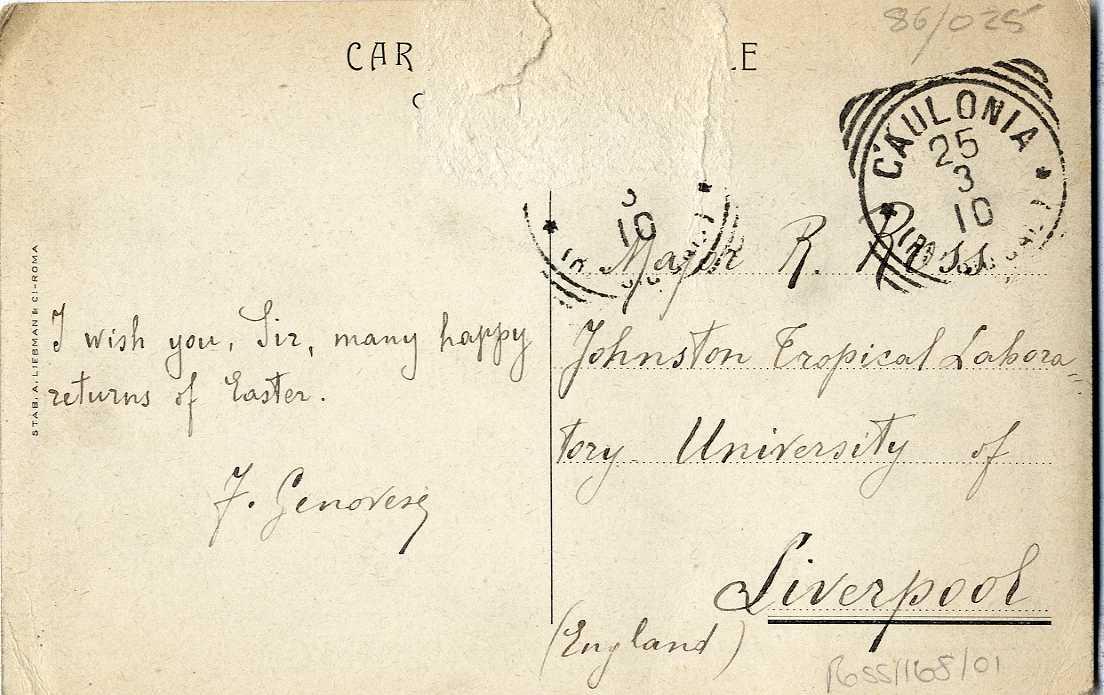 86/025
CAR LE
CAULONIA
25
3
10
10
Major R. Ross
I wish you, Sir, many happy
returns of Easter.
F. Genovese
Johnston Tropical Labora
tory University of
Liverpool
(England)
STAB. A. LIEBMAN & CI-ROMA
Ross/168/01